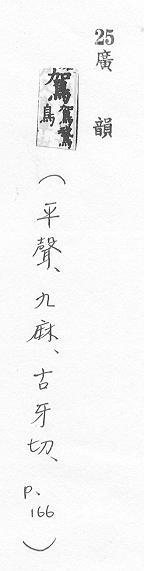 25
廣韻
鴐鴐鵞鳥
(平聲、九麻、古牙切、p.166)